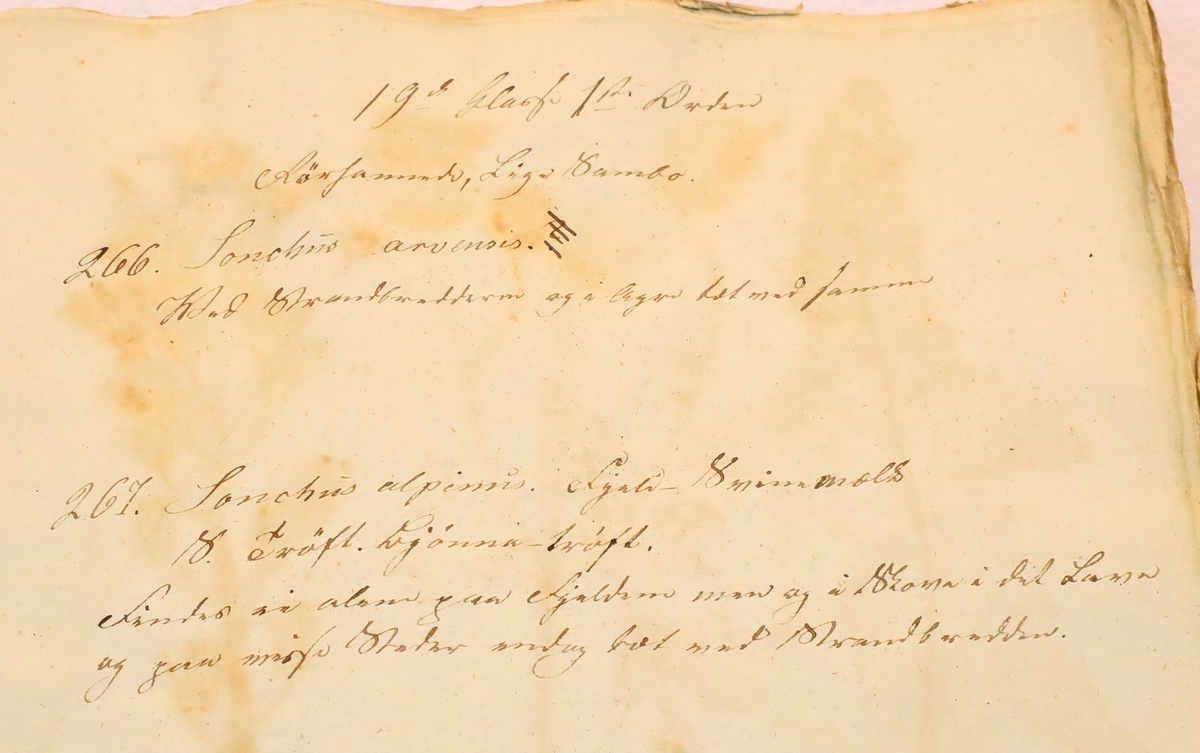 19d Classe 1ste Orden
Rörsamnede, Lige Sambo.
266. Sonchus arvensis.
Ved Strandbredderne og i Agre tæt ved samme
267. Sonchus alpinus. Fjeld-Svinemælk
S. Tröft. Bjönna-tröft.
Findes ei alene paa Fjeldene men og i Skove i det Lave
og paa visse Steder endog tæt ved Strandbredden.